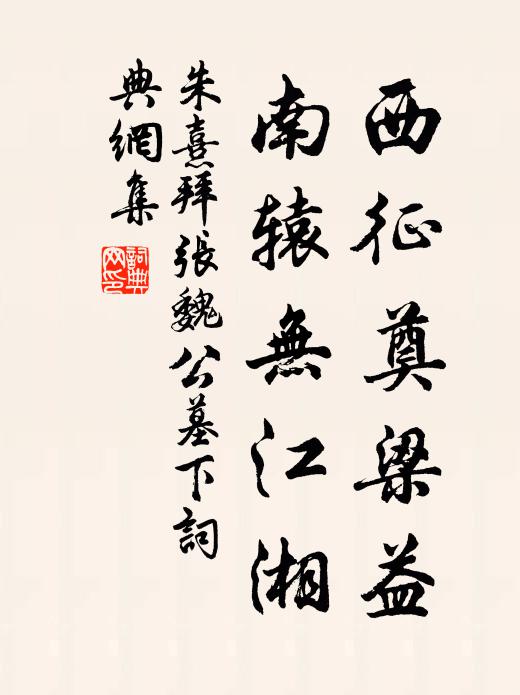 西征奠梁益
南辕無江湘
朱熹拜張魏公墓下詞
典網集
詞典网印